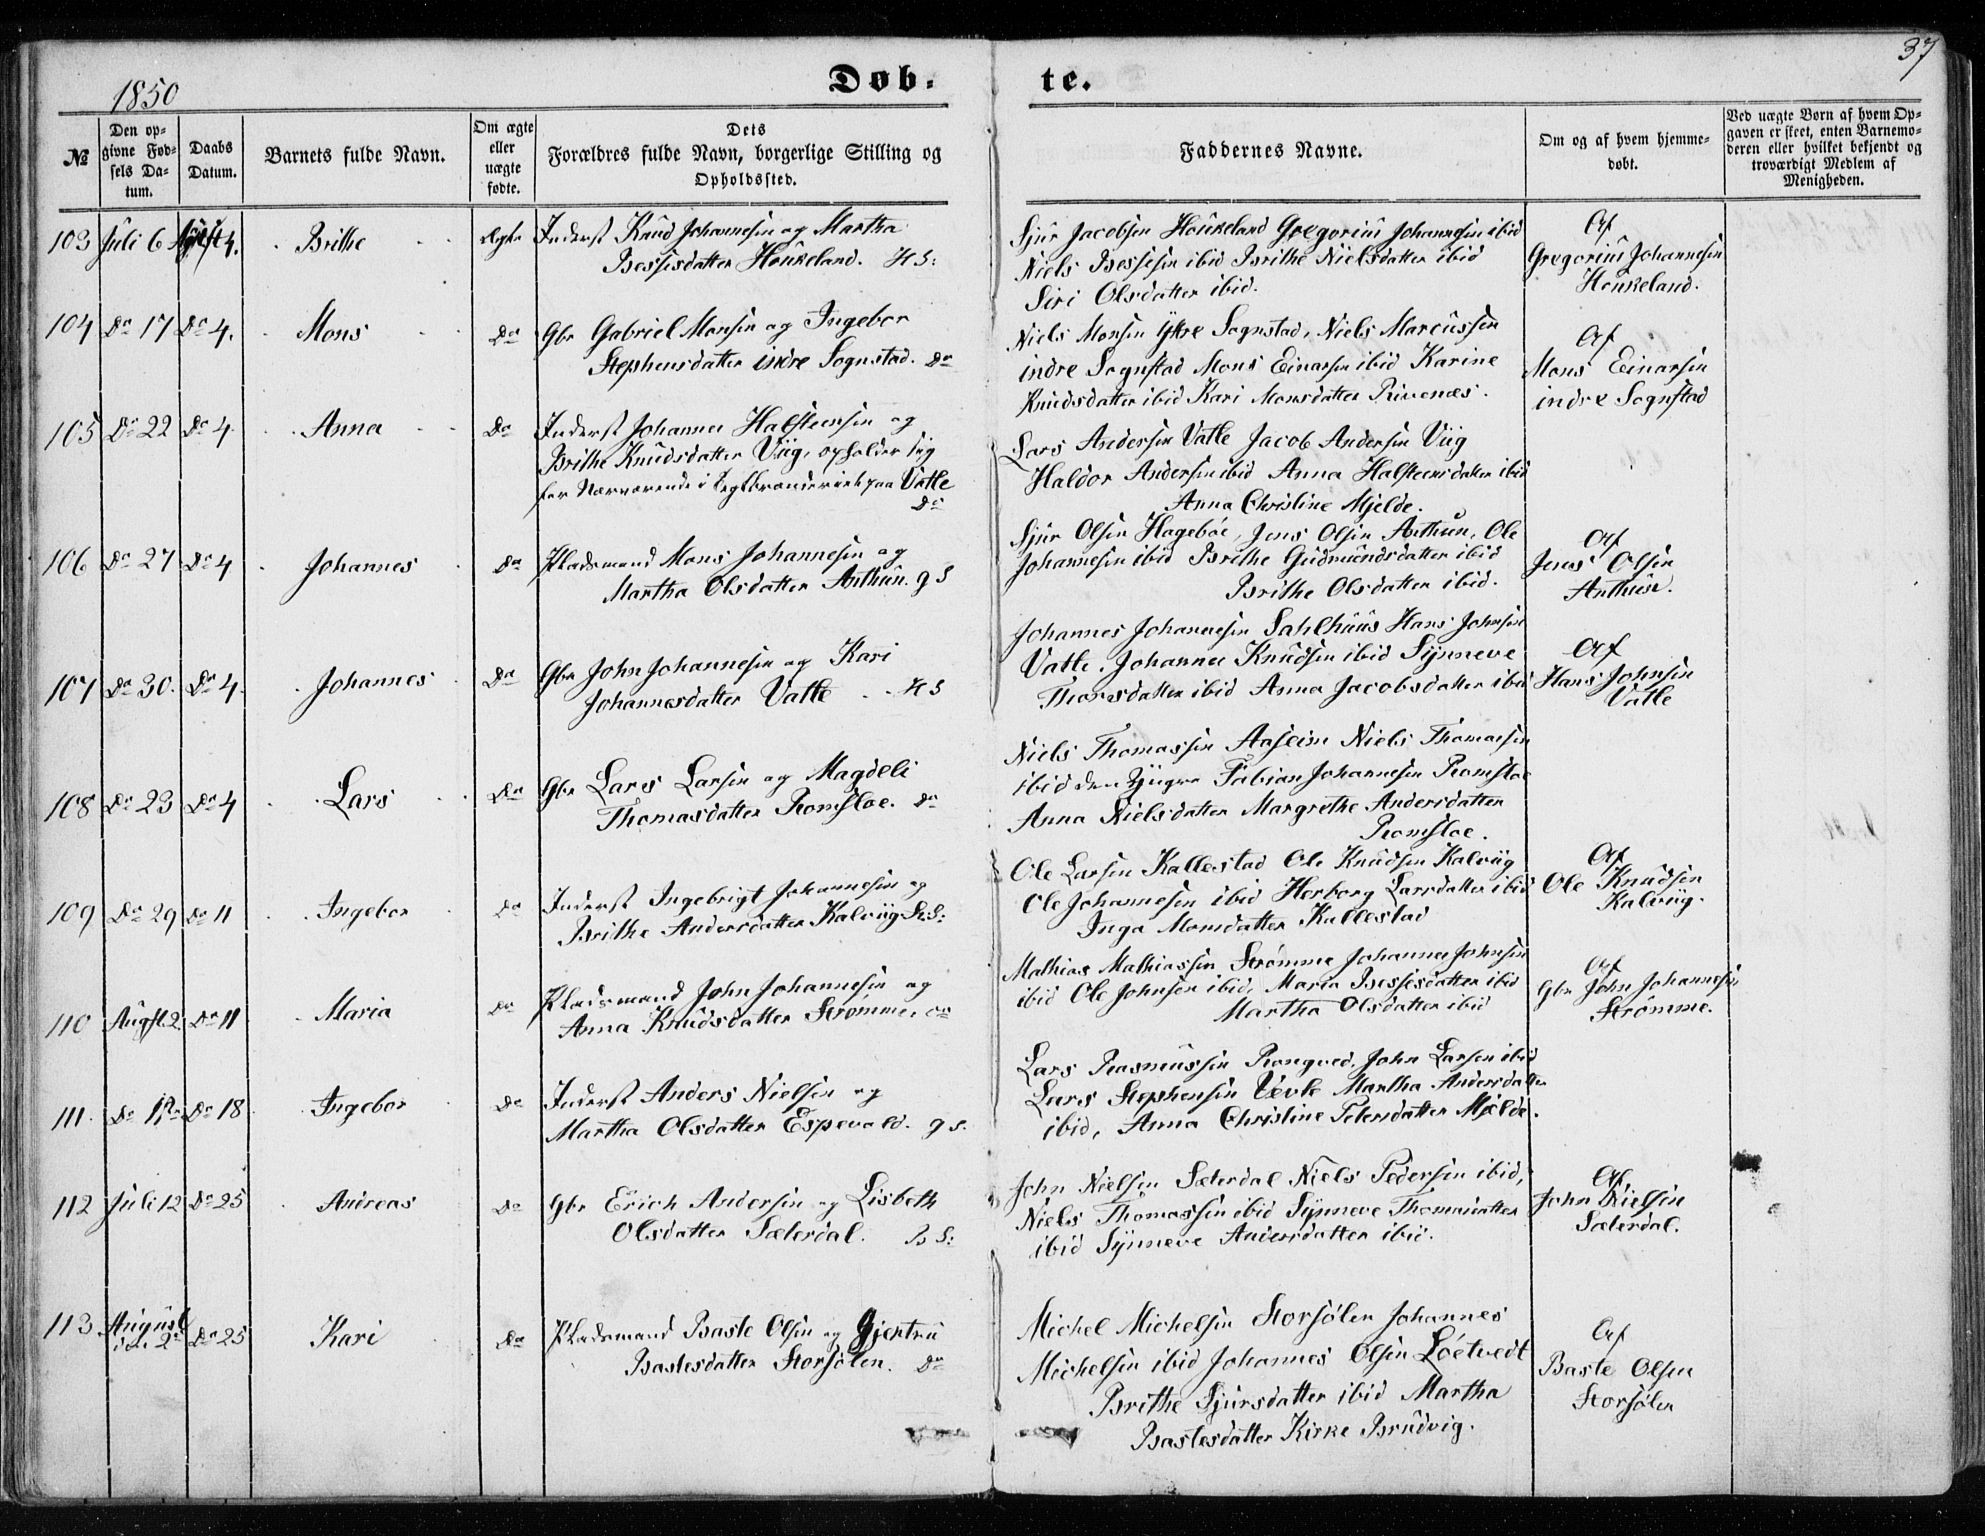 37
1850
Døb-
te.
№
Den op-
givne Fød-
sels Da-
tum.
Daabs
Datum.
Barnets fulde Navn.
Om ægte
eller
uægte
fødte.
Dets
Forældres fulde Navn, borgerlige Stilling og
Opholdssted.
Faddernes Navne.
Om og af hvem hjemme-
døbt.
Ved uægte Børn af hvem Op-
gaven er skeet, enten Barnemo-
deren eller hvilket bekjendt og
troværdigt Medlem af
Menigheden.
103 Juli 6 August 4. Brithe Ægte Inderst Knud Johannesen og Martha
Bessesdatter Houkeland. H S:
Sjur Jacobsen Houkeland Gregorius Johannesen ibid
Niels Bessesen ibid Brithe Nielsdatter ibid
Siri Olsdatter ibid.
Af
Gregorius Johannesen
Houkeland.
104 Do 17 Do 4. Mons Do Gbr Gabriel Monsen og Ingebor
Stephensdatter indre Sognstad. Do
Niels Monsen Ytre Sognstad, Niels Marcussen
indre Sognstad Mons Einarsen ibid Karine
Knudsdatter ibid Kari Monsdatter Rivenæs.
Af
Mons Einarsen
indre Sognstad
105 Do 22 Do 4 Anna Do Inderst Johannes Halsteensen og
Brithe Knudsdatter Viig, opholder sig
for Nærværende i Teglbrænderiet paa Vatle
Do
Lars Andersen Vatle Jacob Andersen Viig
Haldor Andersen ibid Anna Halsteensdatter ibid
Anna Christine Mjelde.
106 Do 27 Do 4 Johannes Do Pladsmand Mons Johannesen og
Martha Olsdatter Anthun. g S
Sjur Olsen Hagebøe, Jens Olsen Anthun, Ole
Johannesen ibid Brithe Gudmundsdatter ibid
Brithe Olsdatter ibid.
Af
Jens Olsen
Anthun.
107 Do 30. Do 4. Johannes Do Gbr John Johannesen og Kari
Johannesdatter Vatle H S
Johannes Johannesen Sahlhuus Hans Johnsen
Vatle. Johannes Knudsen ibid Synneve
Thoresdatter ibid Anna Jacobsdatter ibid
Af
Hans Johnsen
Vatle
108 Do 23 Do 4 Lars Do Gbr Lars Larsen og Magdeli
Thomasdatter Romsloe. Do
Niels Thomassen Aaseim Niels Thomassen
ibid den Yngre Fabian Johannesen Romsloe
Anna Nielsdatter Margrethe Andersdatter
Romsloe.
109 Do 29 Do 11 Ingebor Do Inderst Ingebrigt Johannesen og
Brithe Andersdatter Kalviig H:S:
Ole Larsen Kallestad Ole Knudsen Kalviig
Ole Johannesen ibid Herborg Larsdatter ibid
Inga Monsdatter Kallestad
Af
Ole Knudsen
Kalviig.
110 Augst 2 Do 11 Maria Do Pladsmand John Johannesen og
Anna Knudsdatter Strømme. Do
Mathias Mathiassen Strømme Johannes Johnsen
ibid Ole Johnsen ibid, Maria Bessesdatter ibid
Martha Olsdatter ibid
Af
Gbr John Johannesen
Strømme.
111. Do Do 18 Ingebor Do Inderst Anders Nielsen og
Martha Olsdatter Espevold. g S.
Lars Rasmussen Rongved. John Larsen ibid
Lars Stephensen Vevle Martha Andersdatter
ibid, Anna Christine Petersdatter Mjelde.
112 Juli 12 Do 25 Andreas Do Gbr Erich Andersen og Lisbeth
Olsdatter Sæterdal. B S:
John Nielsen Sæterdal Niels Pedersen ibid,
Niels Thomassen ibid Synneve Thomasdatter
ibid Synneve Andersdatter ibid.
Af
John Nielsen
Sæterdal.
113. August
2 Do 25 Kari Do Pladsmand Baste Olsen og Gjertru
Bastesdatter Storsølen. Do
Michel Michelsen Storsølen Johannes
Michelsen ibid Johannes Olsen Løetvedt
Brithe Sjursdatter ibid Martha
Bastesdatter Kirke Brudvig.
Af
Baste Olsen
Storsølen